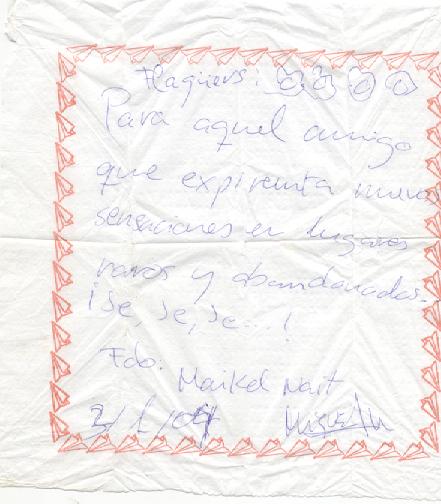 Flaquers:
Para aquel amigo
que expirenta nuevas
sensaciones en lugares
raros y abandonados..
¡Je, je, je...!
Fdo: Maikel Nait
2/1/04